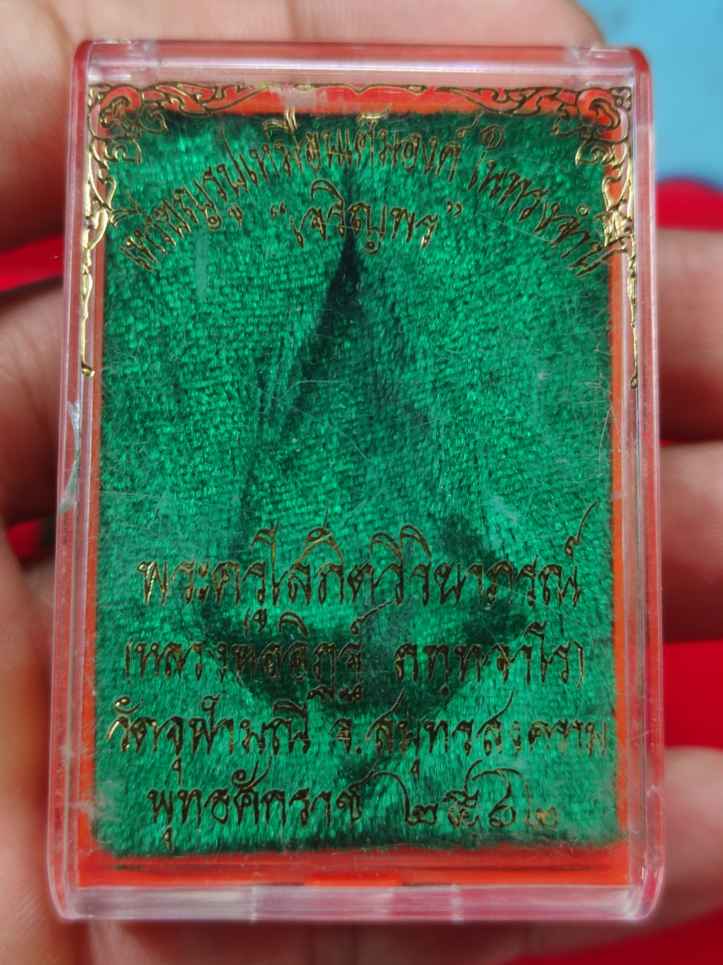 เหรียญรูปเหมือนเต็มองค์
"เจริญพร"
พระครูโสภิตวิริยาภรณ์
(หลวงพ่ออิฏฐ์ ภทฺทจาโร)
วัดจุฬามณี จ.สมุทรสงคราม
พุทธศักราช ๒๕๖๒